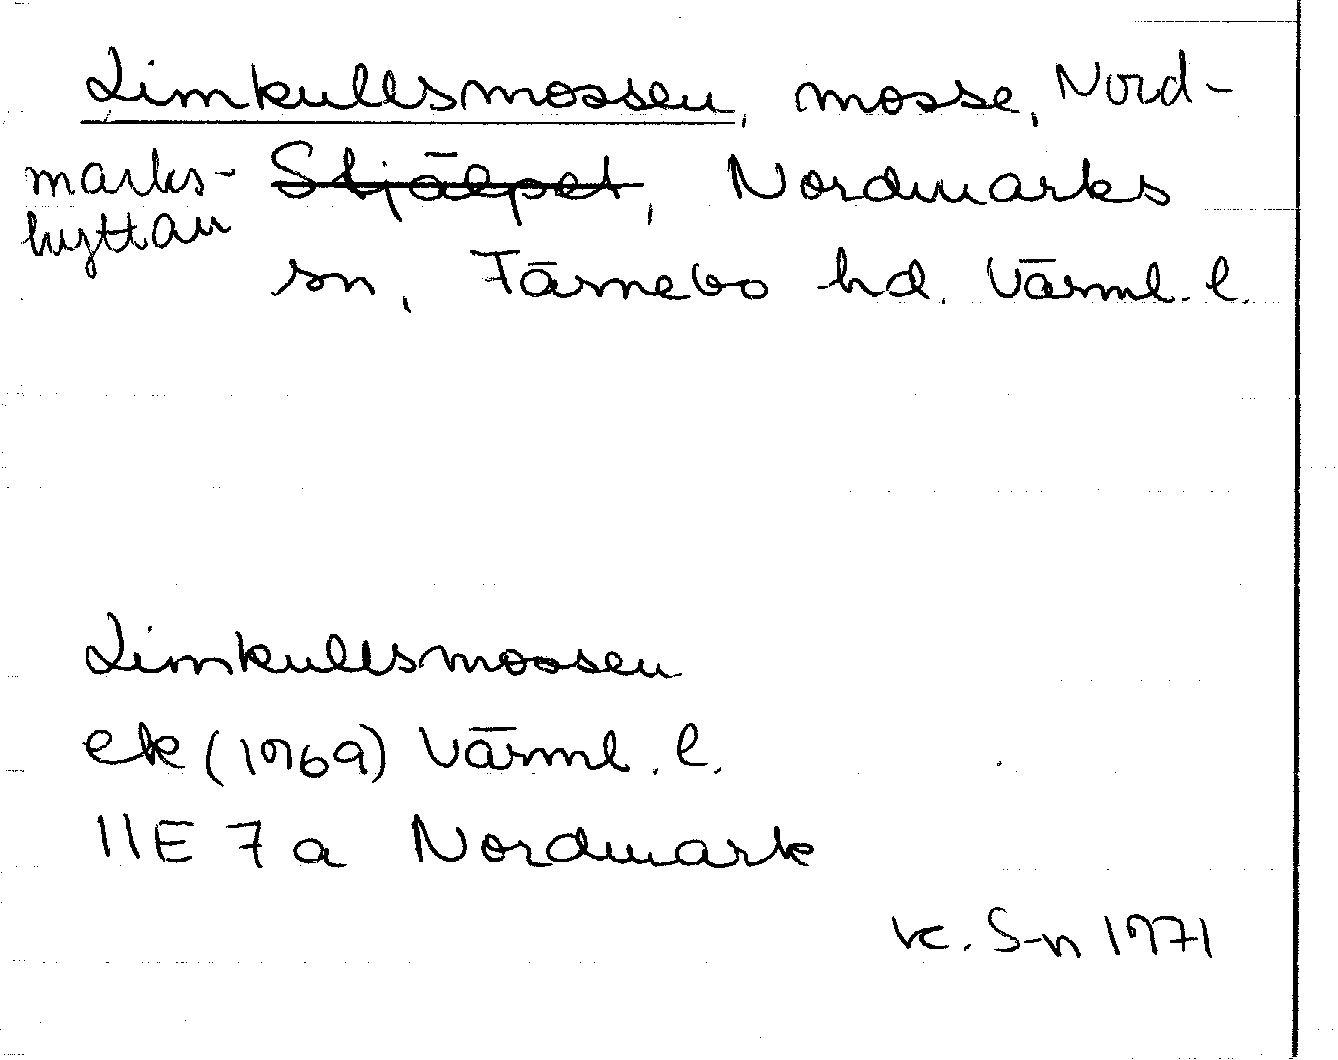 Limkullsmossen, mosse, Nord-
marks- Stjälpet, Nordmarks
hyttan
sn, Färnebo hd. Värml. l.
Limkullsmossen
ek (1969) Värml. l.
11E 7a Nordmark
K. S-n 1971